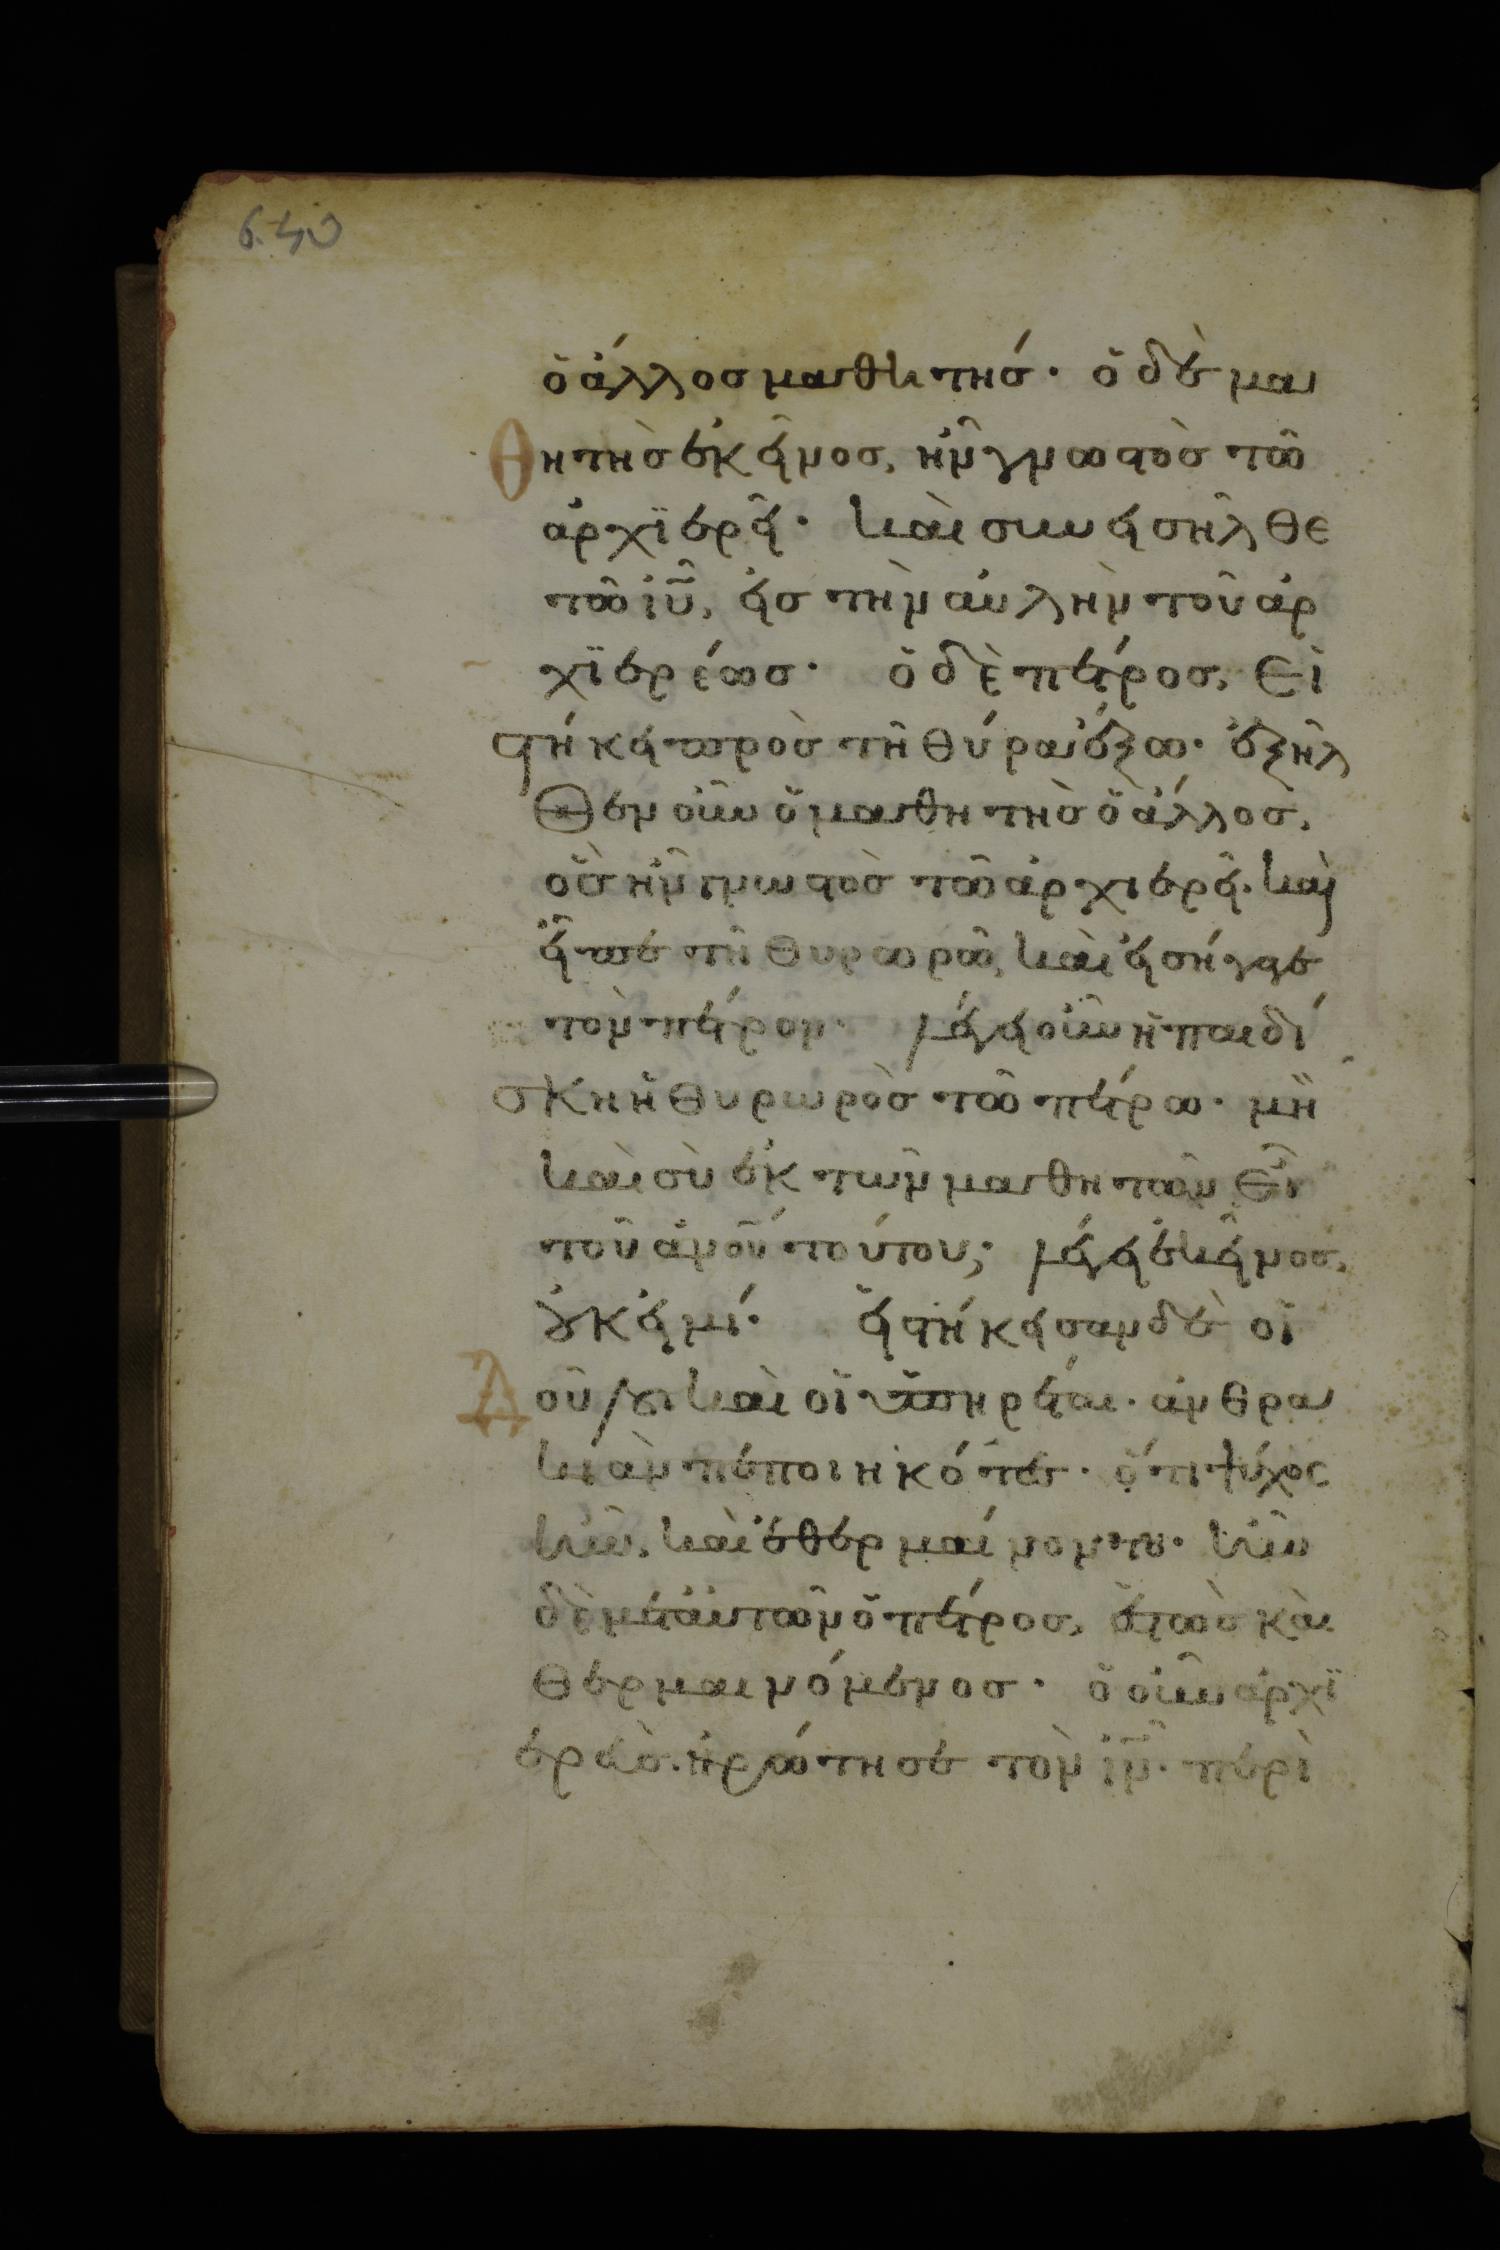 640
ὁ ἄλλοσ μαθητήσ· ὁ δὲ μα
θητὴσ ἐκεῖνοσ, ἦν γνωστὸσ τῶ
ἀρχϊερεῖ· καὶ συνεισῆλθε
τῶ ἰῦ, εἰσ τὴν αὐλὴν τοῦ ἀρ
χϊερέωσ· ὁ δὲ πέτροσ, εἱ
στήκει πρὸσ τῆ θύρα ἔξω· ἐξῆλ
θεν οὖν ὁ μαθητὴσ ὁ ἄλλοσ,
ὃσ ἦν γνωστὸσ τῶ ἀρχιερεῖ· καὶ
εἶπε τῆ θυρωρῶ, καὶ εἰσήγαγε
τὸν πέτρον· λέγει οὖν ἡ παιδί
σκη ἡ θυρωρὸσ τῶ πέτρω· μὴ
καὶ σὺ ἐκ τῶν μαθητῶν εἶ
τοῦ ἀνοῦ τούτου; λέγει ἐκεῖνοσ,
οὐκ εἰμί· εἱστήκεισαν δὲ οἱ
δοῦλοι καὶ οἱ ὑπηρέται· ἀνθρα
κιὰν πεποιηκότεσ· ὅτι ψύχοσ
ἦν, καὶ ἐθερμαίνοντο· ἦν
δὲ μετ' αὐτῶν ὁ πέτροσ, ἑστὼσ καὶ
θερμαινόμενοσ· ὁ οὖν ἀρχϊ
ερεὺσ ἠρώτησε τὸν ἰν· περὶ